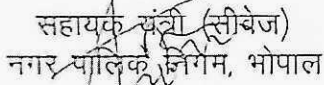 सहायक यंत्री (सीवेज)
नगर पालिक निगम, भोपाल